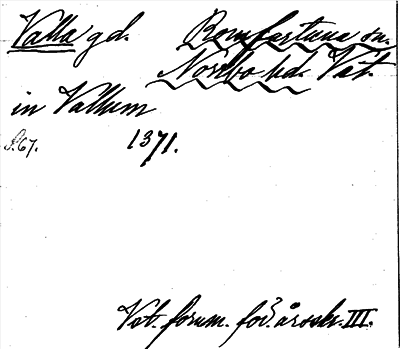 Valla gd. Romfartuna sn.
Norrbo hd. Vstm.
in Vallum
S. 67. 1371.
Vst. fornm. för. årsskr. III.